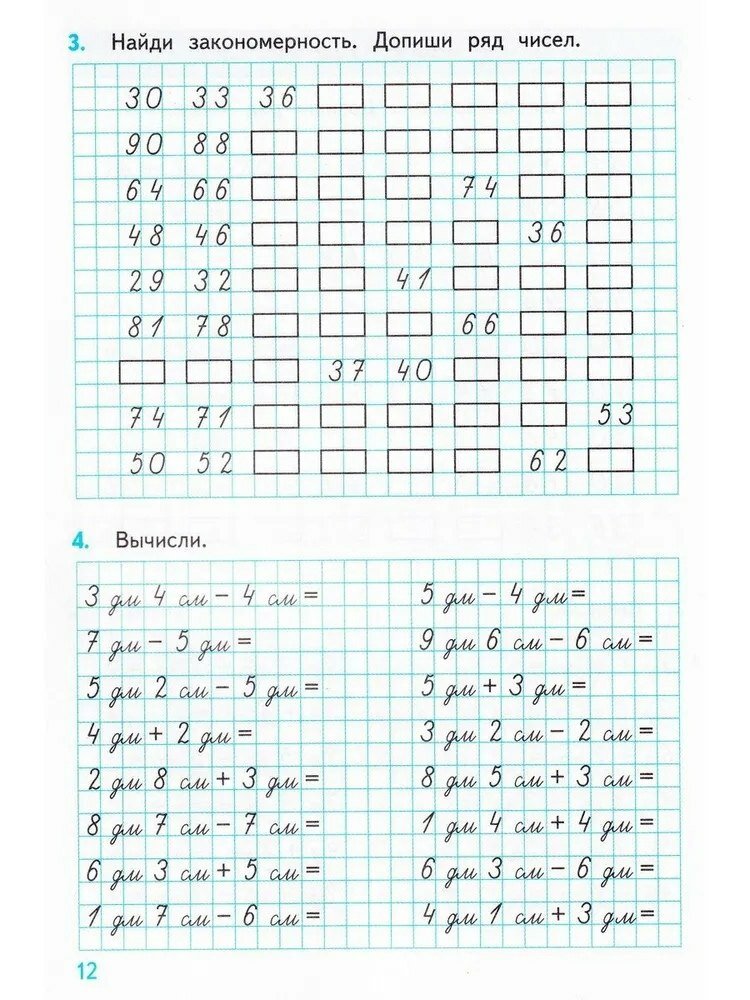 3. Найди закономерность. Допиши ряд чисел.
30 33 36
90 88
64 66 74
48 46 36
29 32 41
81 78 66
37 40
74 71 53
50 52 62
4. Вычисли.
3 дм 4 см – 4 см = 5 дм – 4 дм =
7 дм – 5 дм = 9 дм 6 см – 6 см =
5 дм 2 см – 5 дм = 5 дм + 3 дм =
4 дм + 2 дм = 3 дм 2 см – 2 см =
2 дм 8 см + 3 дм = 8 дм 5 см + 3 см =
8 дм 7 см – 7 см = 1 дм 4 см + 4 дм =
6 дм 3 см + 5 см = 6 дм 3 см – 6 дм =
1 дм 7 см – 6 см = 4 дм 1 см + 3 дм =
12